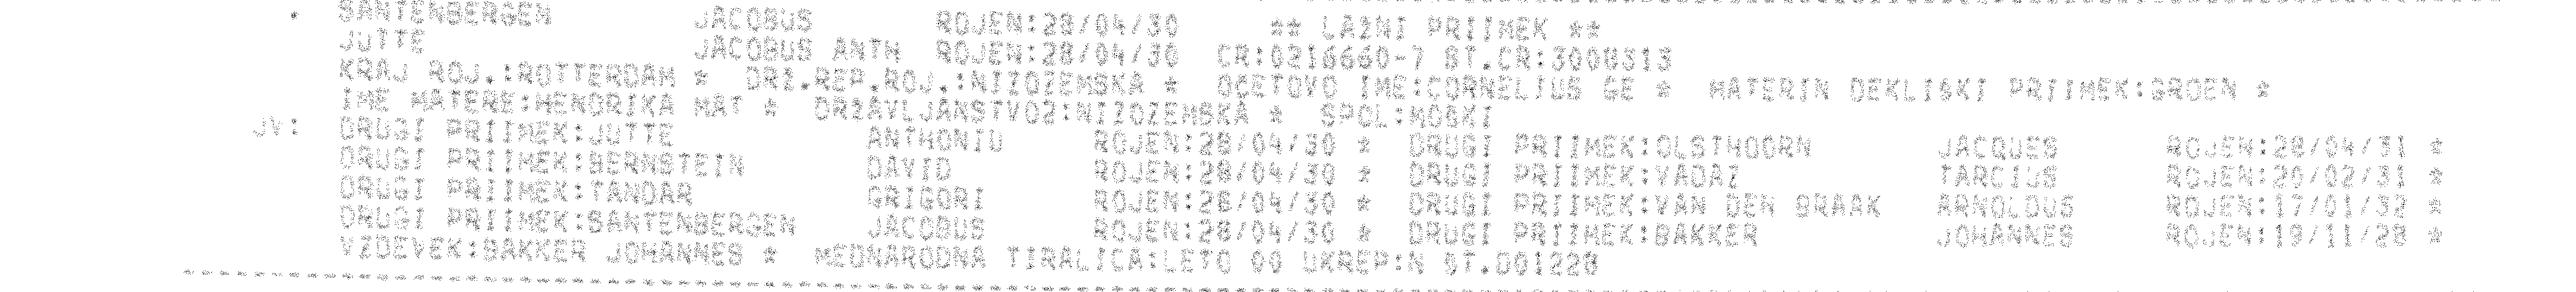 * SANTENBERGEN JACOBUS ROJEN:28/04/30 ** LAZNI PRIIMEK **
JUTTE JACOBUS ANTH ROJEN:28/04/30 CR:0216660-7 ST.CR:300US13
KRAJ ROJ.:ROTTERDAM * DRZ.REP.ROJ.:NIZOZEMSKA * OCETOVO IME:CORNELIUS GE * MATERIN DEKLISKI PRIIMEK:GROEN *
IME MATERE:HENDRIKA MAT * DRZAVLJANSTVO2:NIZOZEMSKA * SPOL:MOSKI
JV: DRUGI PRIIMEK:JUTTE ANTHONIU ROJEN:28/04/30 * DRUGI PRIIMEK:OLSTHOORN JACQUES ROJEN:28/04/31 *
DRUGI PRIIMEK:BERNSTEIN DAVID ROJEN:28/04/30 * DRUGI PRIIMEK:VADAZ TARCIUS ROJEN:20/02/31 *
DRUGI PRIIMEK:TANDAR GRIGORI ROJEN:28/04/30 * DRUGI PRIIMEK:VAN DEN BRAAK ARNOLDUS ROJEN:17/01/32 *
DRUGI PRIIMEK:SANTENBERGEN JACOBUS ROJEN:28/04/30 * DRUGI PRIIMEK:BAKKER JOHANNES ROJEN:19/11/28 *
VZDEVEK:BAKKER JOHANNES * MEDNARODNA TIRALICA:LETO 00 UKREP:N ST.D01228